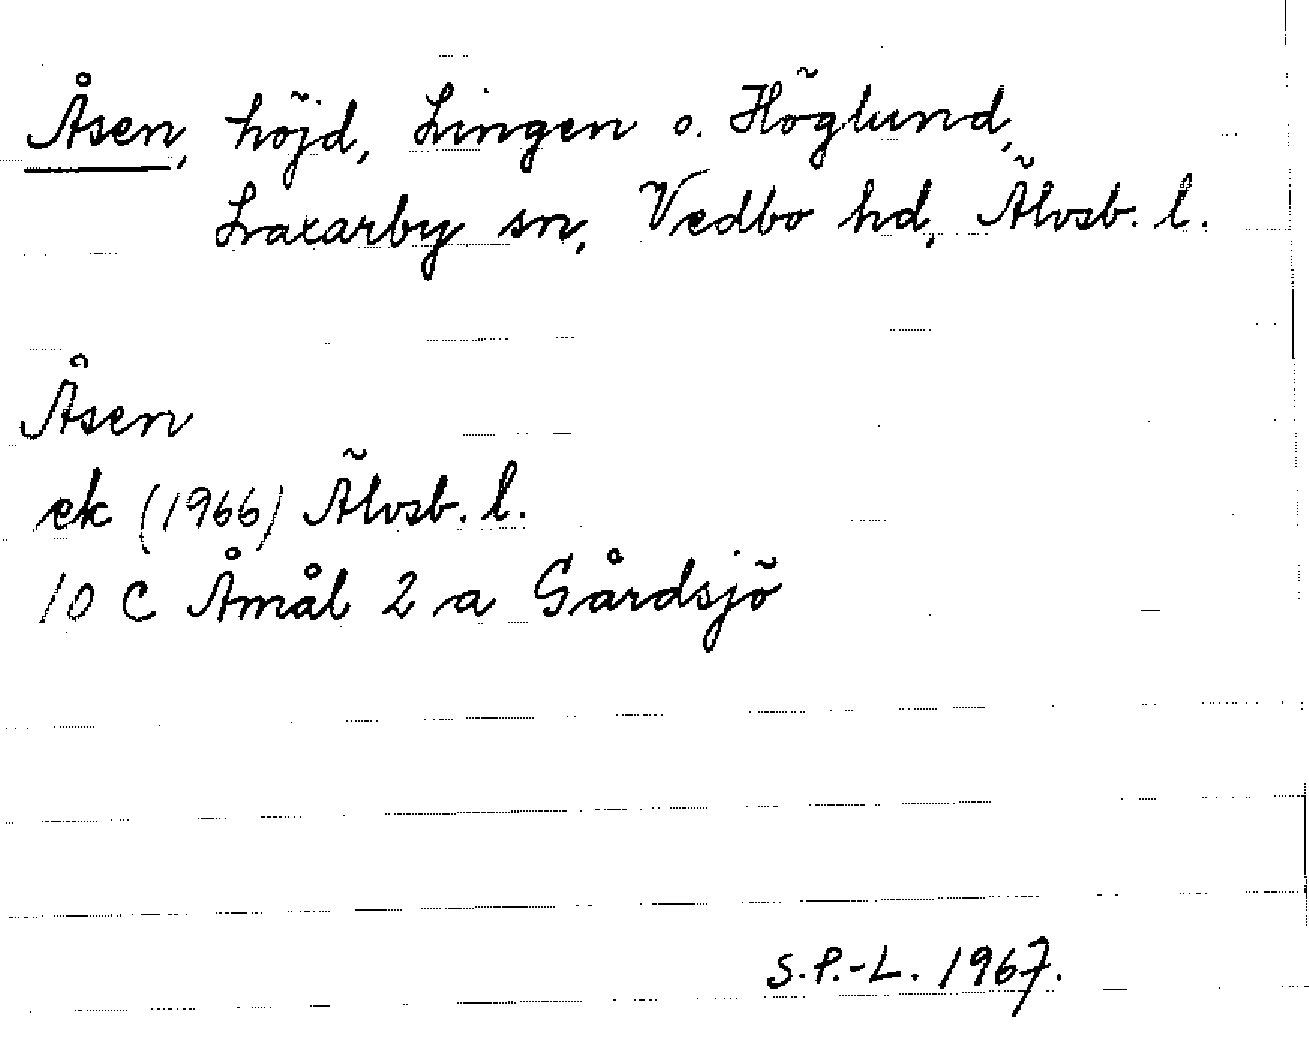 Åsen, höjd, Lingen o. Höglund,
Laxarby sn, Vedbo hd, Älvsb. l.
Åsen
ek (1966) Älvsb. l.
10 C Åmål 2 a Gårdsjö
S.P.-L. 1967.